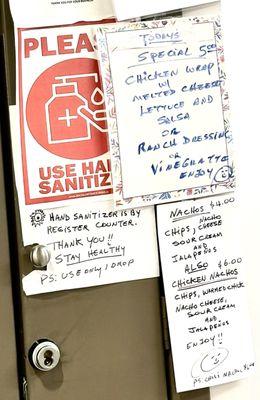 THANK YOU FOR YOUR BUSINESS
PLEA
USE HA
SANITIZ
HAND SANITIZER IS BY
REGISTER COUNTER.
THANK YOU!!
STAY HEALTHY
PS: USE ONLY 1 DROP
TODAYS
SPECIAL 5.00
CHICKEN WRAP
W/
MELTED CHEESE
LETTUCE AND
SALSA
OR
RANCH DRESSING
OR
VINEGRATTE
ENJOY
NACHOS $4.00
CHIPS, NACHO CHEESE
SOUR CREAM
AND
JALAPEÑOS
ALSO $6.00
CHICKEN NACHOS
CHIPS, WARMED CHICK
NACHO CHEESE,
SOUR CREAM
AND
JALAPEÑOS
ENJOY!!
PS: CHILI NACHO